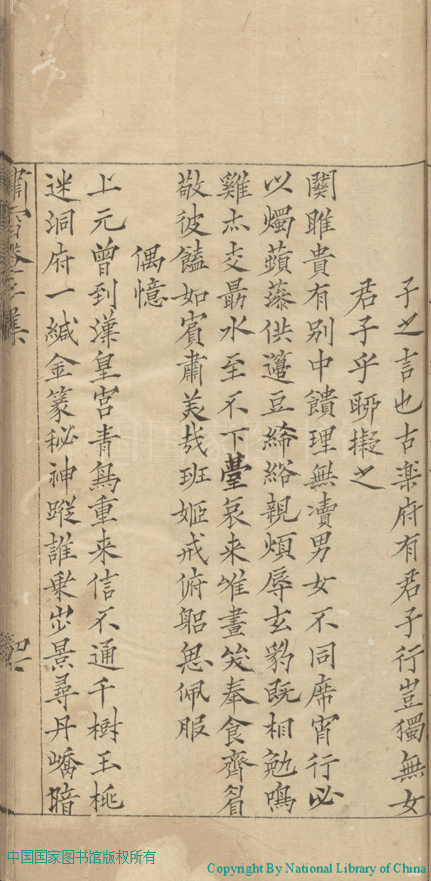 子之言也古樂府有君子行豈獨無女
君子乎聊擬之
關雎貴有别中饋理無瀆男女不同席宵行必
以燭蘋藻供籩豆絺綌親煩辱玄豹既相勉鳴
雞杰交勗水至不下臺哀来唯晝哭奉食齊眉
敬彼饁如賓肅美哉班姬戒俯躬思佩服
偶憶
上元曾到漢皇宫青鳥重来信不通千樹玉桃
迷洞府一緘金篆秘神蹤誰乘景尋丹嶠暗
中国国家图书馆版权所有
Copyright By National Library of China